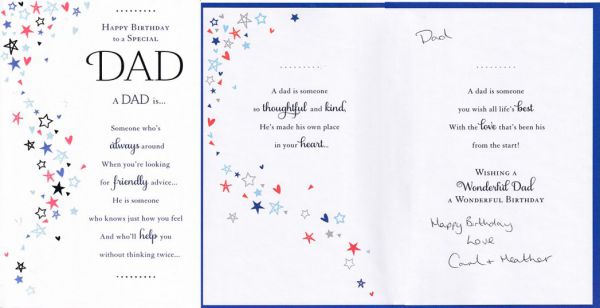 HAPPY BIRTHDAY
TO A SPECIAL
DAD
A DAD IS...
SOMEONE WHO'S
always AROUND
WHEN YOU'RE LOOKING
FOR friendly ADVICE...
HE IS SOMEONE
WHO KNOWS JUST HOW YOU FEEL
AND WHO'LL help YOU
WITHOUT THINKING TWICE...
A DAD IS SOMEONE
SO thoughtful AND kind,
HE'S MADE HIS OWN PLACE
IN YOUR heart...
Dad
A DAD IS SOMEONE
YOU WISH ALL LIFE'S best
WITH THE love THAT'S BEEN HIS
FROM THE START!
WISHING A
Wonderful Dad
A WONDERFUL BIRTHDAY
Happy Birthday
Love
Carl + Heather